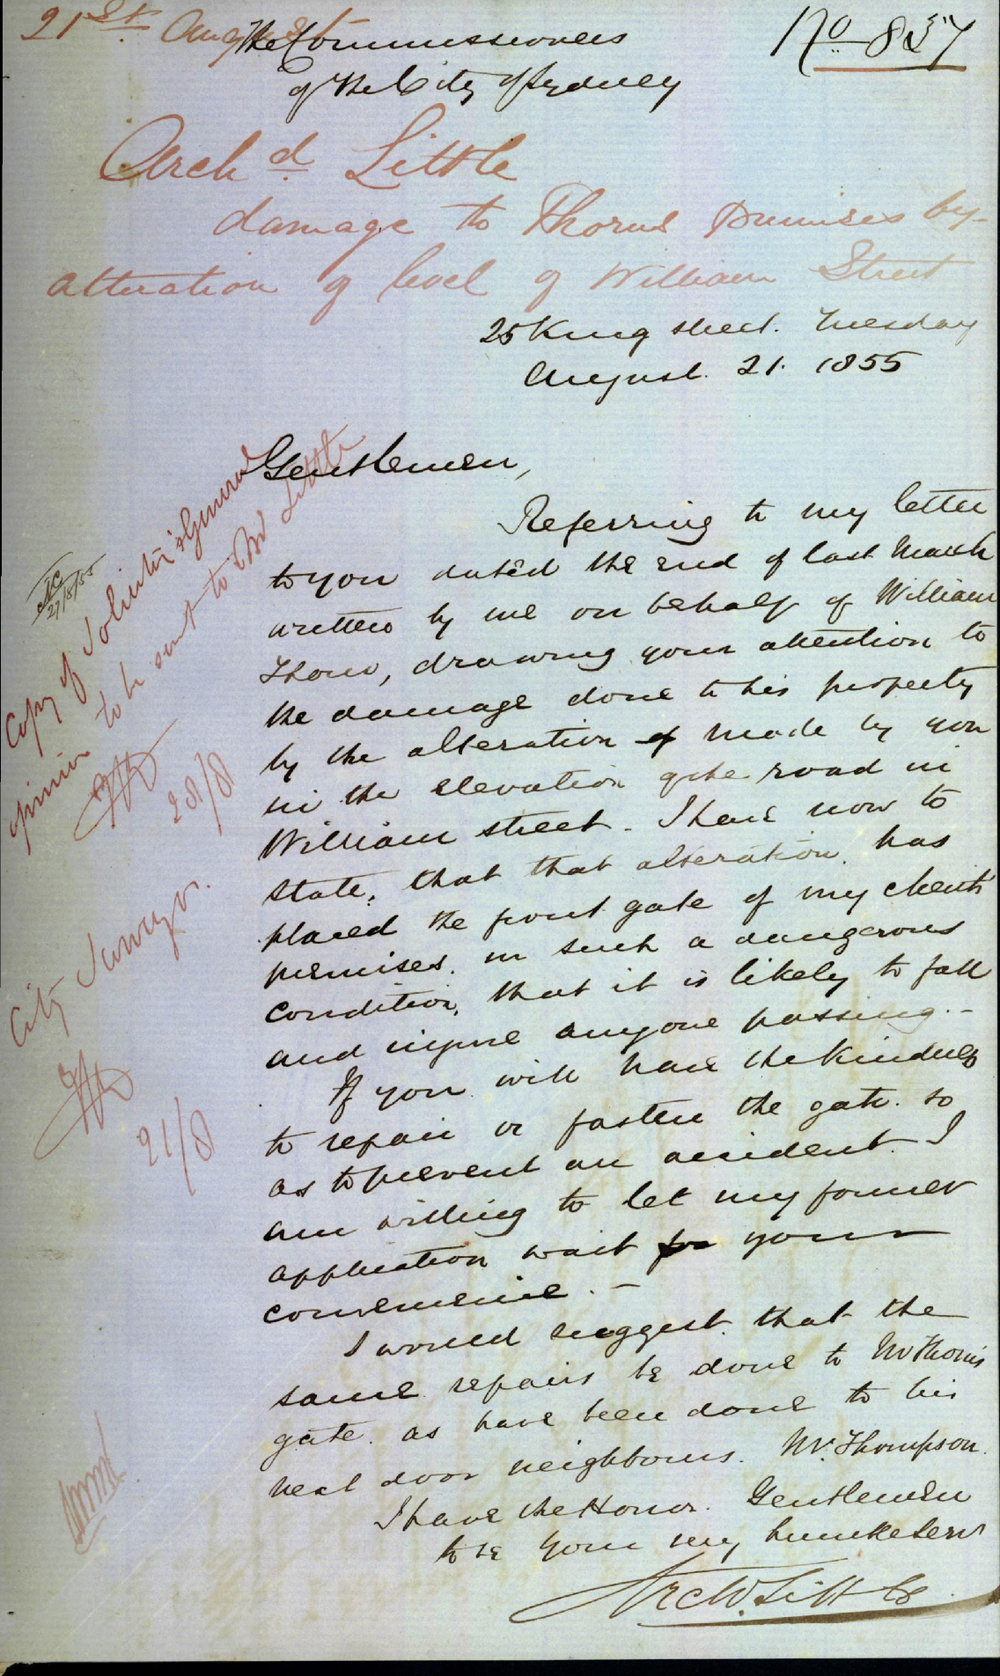 21st August
No 857
The Commissioners
of the City of Sydney
Archd Little
damage to Thorns Premises by
alteration of level of William Street
25 King street. Tuesday
August. 21. 1855
Gentlemen,
Referring to my letter
to you dated the end of last March
written by me on behalf of William
Thorn, drawing your attention to
the damage done to his property
by the alteration of made by you
in the elevation of the road in
William street. I have now to
state, that that alteration. has
placed the front gate of my clients
premises. in such a dangerous
condition, that it is likely to fall
and injure anyone passing. -
If you will have the kindness
to repair or fasten the gate. so
as to prevent an accident. I
am willing to let my former
application wait for your
convenience. -
I would suggest. that the
same repairs be done to Mr Thorn's
gate. as have been done to his
next door neighbours. Mr. Thompson.
I have the Honor. Gentlemen
to be your my humble Servt
Archd. Little
Copy of Solicitor General's
opinion to be sent to Mr Little
28/8
27/8/55
City Surveyor.
21/8